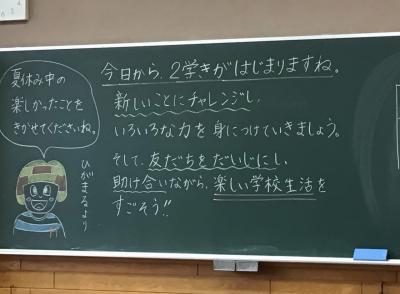 今日から、2学きがはじまりますね。
新しいことにチャレンジし、
いろいろな力を身につけていきましょう。
そして、友だちをだいじにし、
助け合いながら、楽しい学校生活を
すごそう!!
夏休み中の
楽しかったことを
きかせてくださいね。
ひがまるより